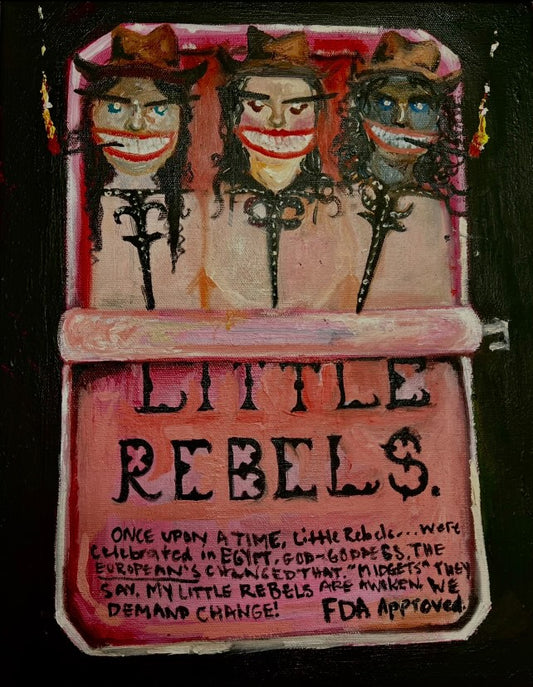 LITTLE
REBEL$.
ONCE UPON A TIME, Little Rebels... were
Celebrated in EGYPT, GOD-GODDESS. THE
EUROPEAN'S CHANGED THAT. "MIDGETS" THEY
SAY. MY LITTLE REBELS ARE AWOKEN. WE
DEMAND CHANGE! FDA Approved.